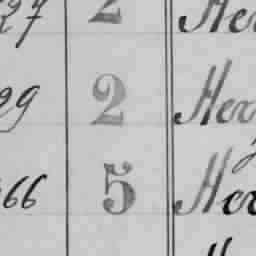 27 2 Her
29 2 Her
66 5 Her